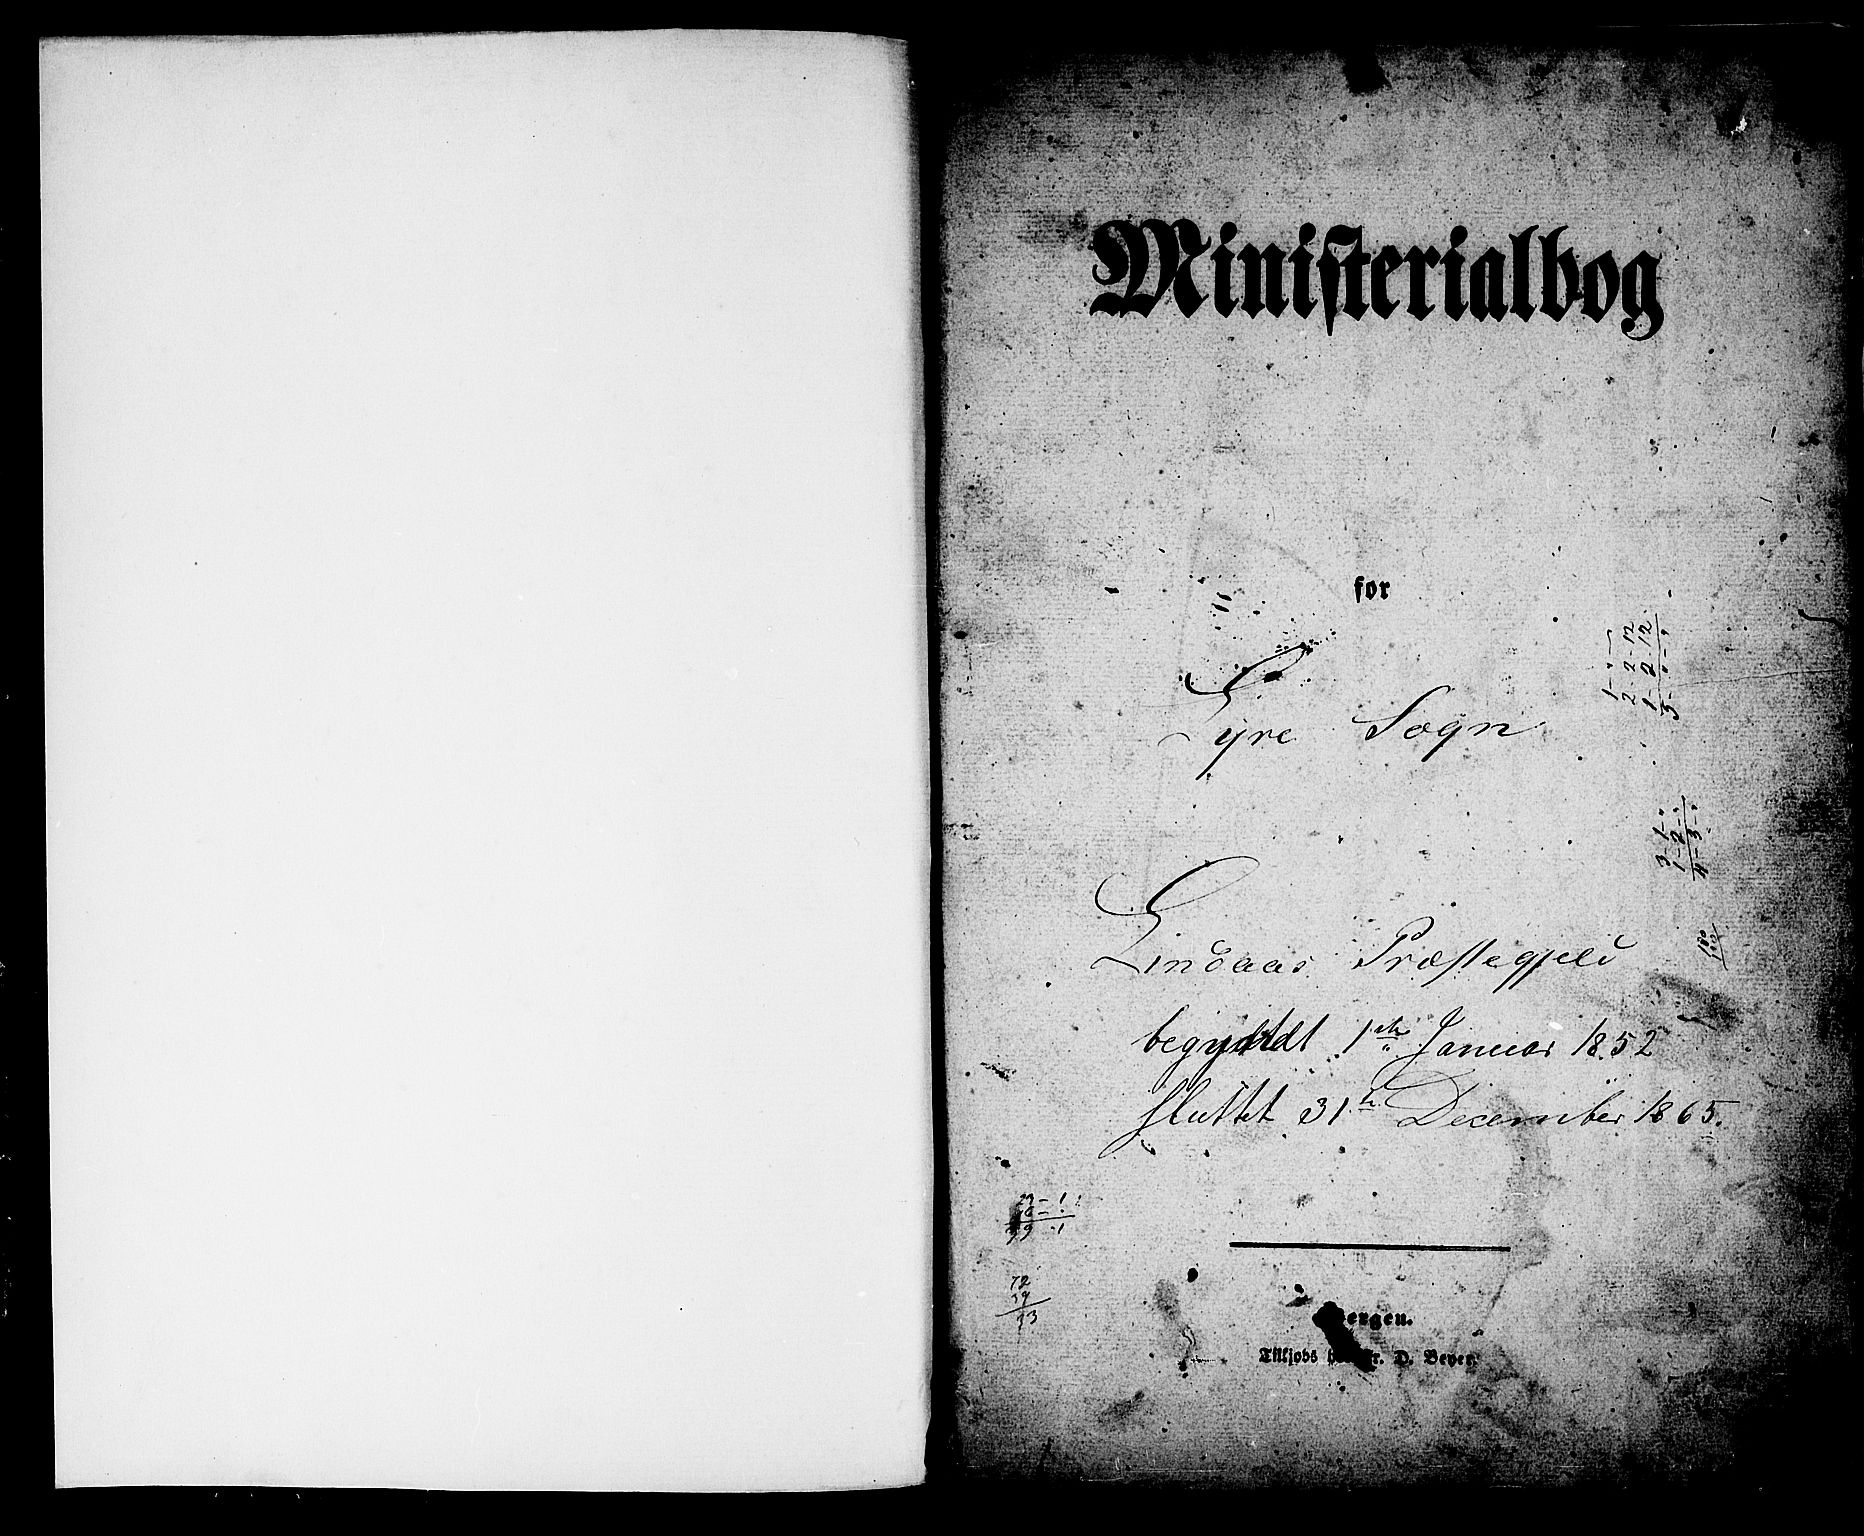 Ministerialbog
for
Lyre Sogn
Lindaas Præstegjeld
begyndt 1ste Januar 1852
sluttet 31te December 1865.
1-"
2-2-12
1-2-12
3-"-"
3-1-"
1-2-"
4-3-"
72
33
Bergen.
Tilkjøbs hos Fr. D. Beyer.